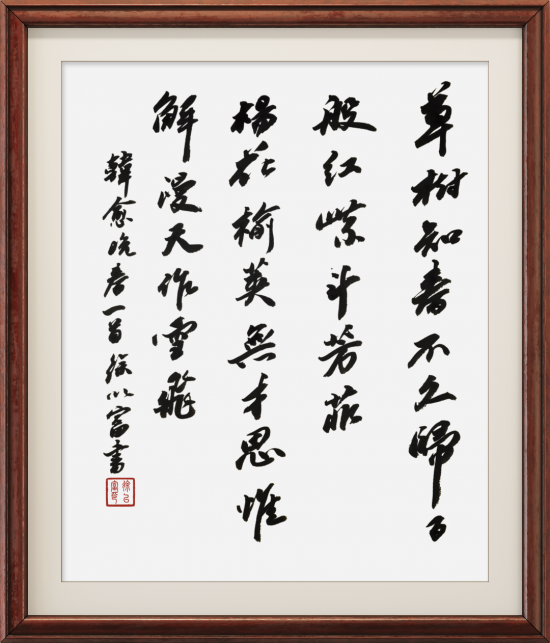 草樹知春不久歸百
般紅紫斗芳菲
楊花榆英無才思惟
解漫天作雪飛
韓愈晚春一首徐以富書
徐以富印